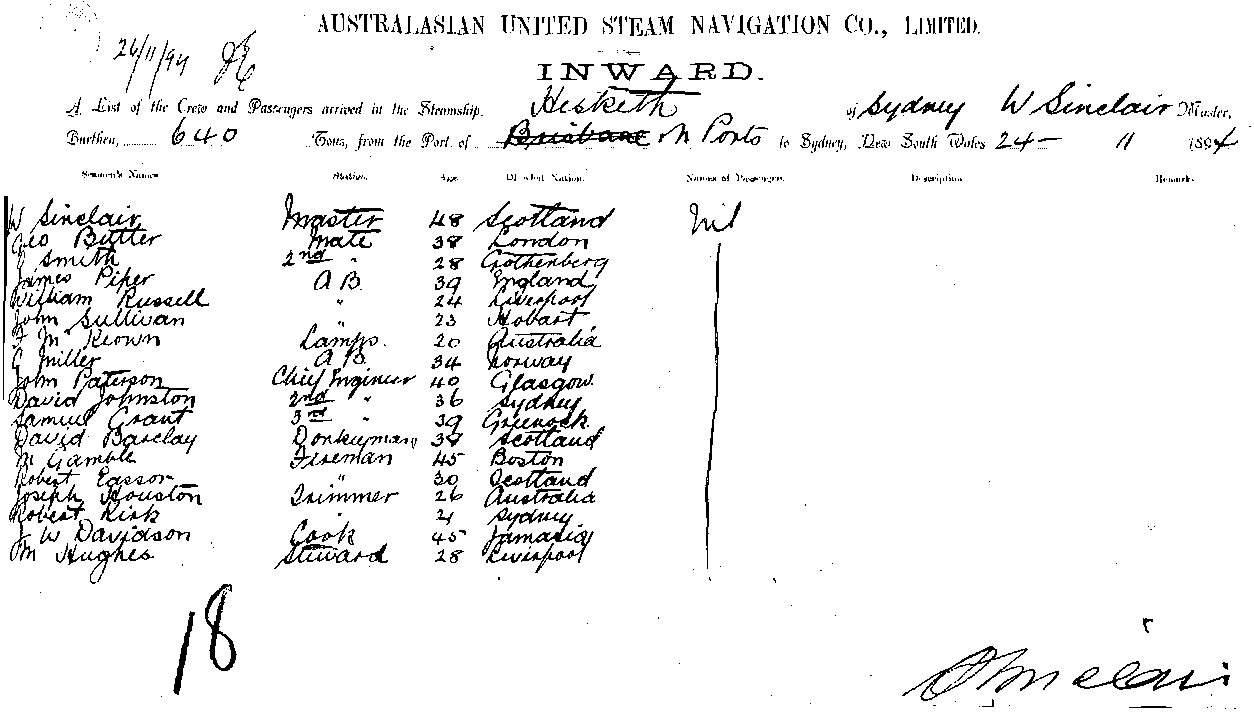 AUSTRALASIAN UNITED STEAM NAVIGATION CO., LIMITED.
26/11/94
INWARD.
A List of the Crew and Passengers arrived in the Steamship Hesketh of Sydney W Sinclair Master,
Burthen, 640 Tons, from the Port of Brisbane N Ports to Sydney, New South Wales 24- 11 1894
Seamen's Names Station. Age. Of what Nation. Names of Passengers. Description. Remarks
W Sinclair Master 48 Scotland Nil
Geo Butter Mate 38 London
Smith 2nd " 28 Gothenberg
James Piper A B. 39 England
William Russell " 24 Liverpool
John Sullivan " 23 Hobart
McKeown Lamps. 20 Australia
Miller A B. 34 Norway
John Paterson Chief Engineer 40 Glasgow.
David Johnston 2nd " 36 Sydney
Samuel Grant 3rd " 39 Greenock.
David Barclay Donkeyman Scotland
M Gamble Fireman 45 Boston
Robert Easson " 30 Scotland
Joseph Houston Trimmer 26 Australia
Robert Kirk " 21 Sydney
J W Davidson Cook 45 Jamacia
M Hughes Steward 28 Liverpool
18
Sinclair